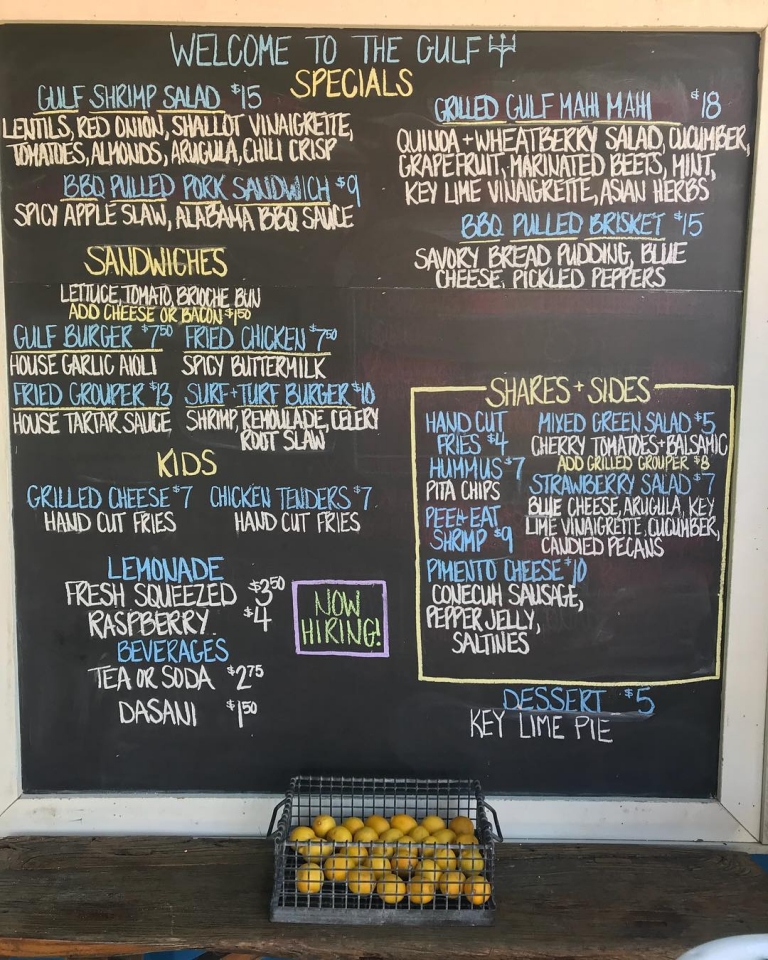 WELCOME TO THE GULF
SPECIALS
GULF SHRIMP SALAD $15
LENTILS, RED ONION, SHALLOT VINAIGRETTE,
TOMATOES, ALMONDS, ARUGULA, CHILI CRISP
BBQ PULLED PORK SANDWICH $9
SPICY APPLE SLAW, ALABAMA BBQ SAUCE
GRILLED GULF MAHI MAHI $18
QUINOA + WHEATBERRY SALAD, CUCUMBER,
GRAPEFRUIT, MARINATED BEETS, MINT,
KEY LIME VINAIGRETTE, ASIAN HERBS
BBQ PULLED BRISKET $15
SAVORY BREAD PUDDING, BLUE
CHEESE, PICKLED PEPPERS
SANDWICHES
LETTUCE, TOMATO, BRIOCHE BUN
ADD CHEESE OR BACON $1.50
GULF BURGER $7.50 FRIED CHICKEN $7.50
HOUSE GARLIC AIOLI SPICY BUTTERMILK
FRIED GROUPER $13 SURF + TURF BURGER $10
HOUSE TARTAR SAUCE SHRIMP, REMOULADE, CELERY
ROOT SLAW
KIDS
GRILLED CHEESE $7 CHICKEN TENDERS $7
HAND CUT FRIES HAND CUT FRIES
LEMONADE
FRESH SQUEEZED $3.50
RASPBERRY $4
BEVERAGES
TEA OR SODA $2.75
DASANI $1.50
NOW
HIRING!
SHARES + SIDES
HAND CUT
FRIES $4
HUMMUS $7
PITA CHIPS
PEEL + EAT
SHRIMP $9
PIMENTO CHEESE $10
CONECUH SAUSAGE,
PEPPER JELLY,
SALTINES
MIXED GREEN SALAD $5
CHERRY TOMATOES + BALSAMIC
ADD GRILLED GROUPER $8
STRAWBERRY SALAD $7
BLUE CHEESE, ARUGULA, KEY
LIME VINAIGRETTE, CUCUMBER,
CANDIED PECANS
DESSERT $5
KEY LIME PIE